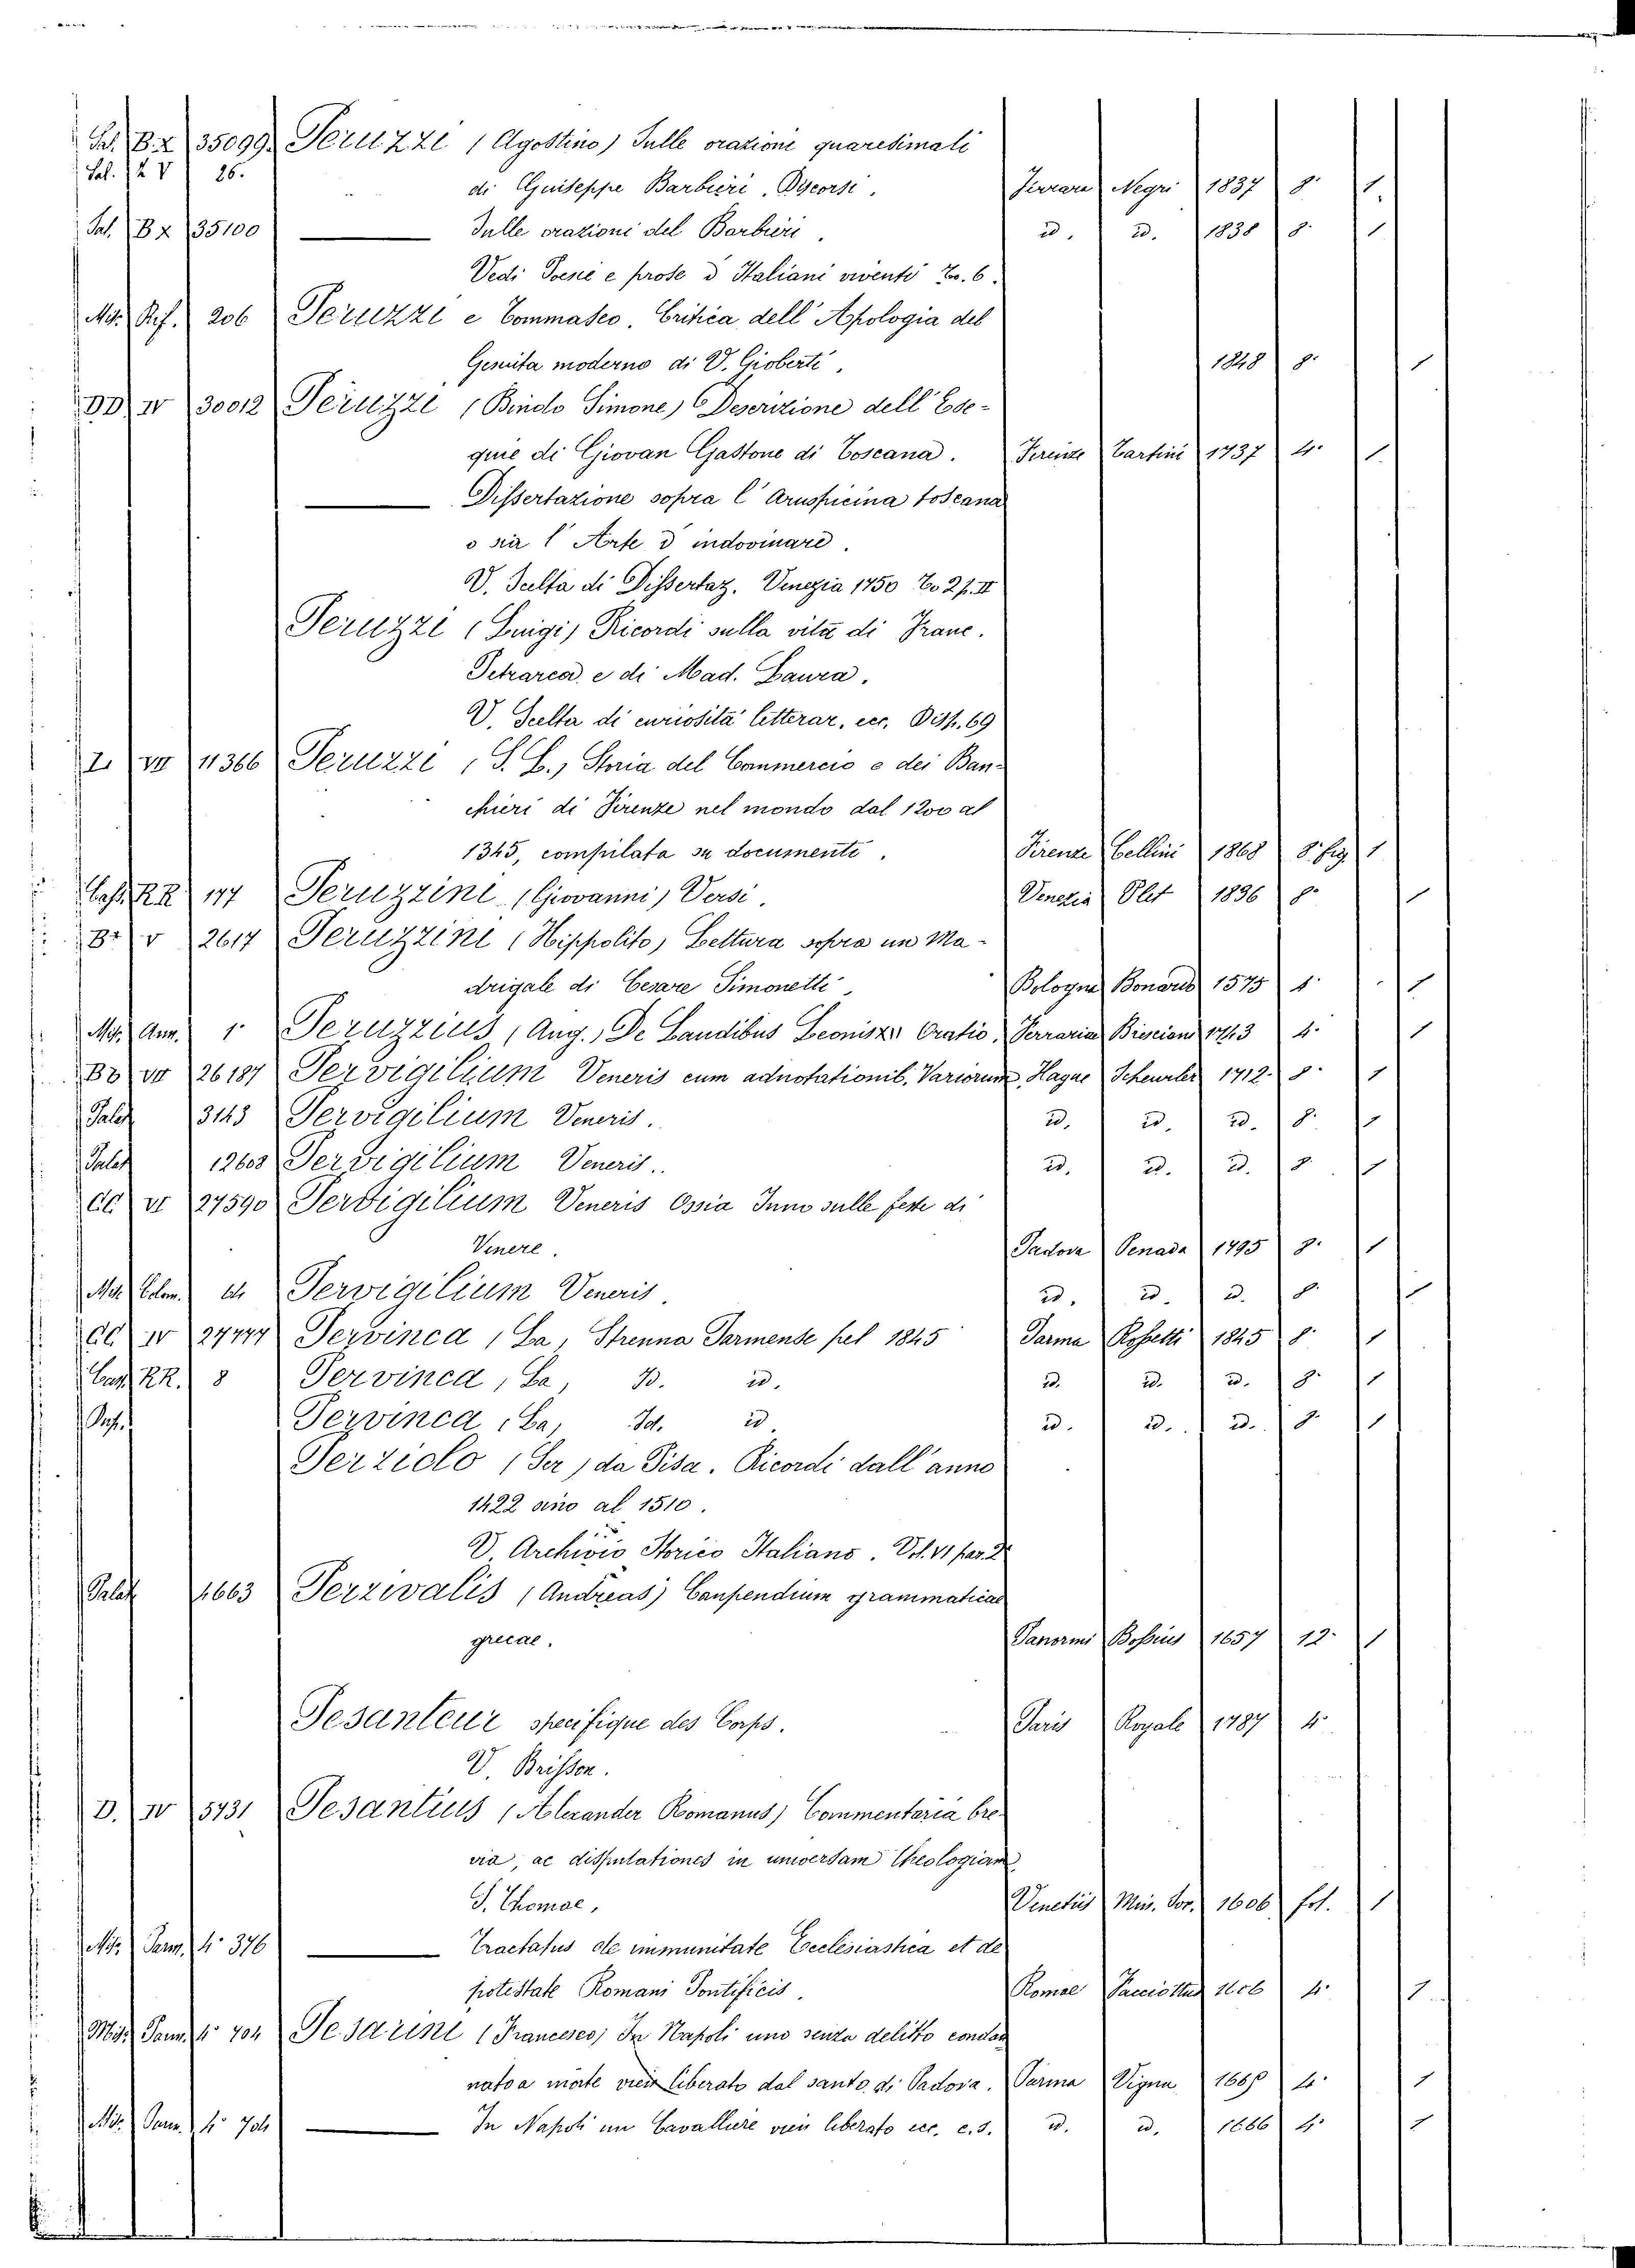 Sal. B. x 35099. Peruzzi (Agostino) Sulle orazioni quaresimali
Sal. 12 V 26. di Giuseppe Barbieri, Discorsi. Ferrara Negri 1837 8° 1
Sal. B x 35100 — Sulle orazioni del Barbieri. id. id. 1838 8° 1
Vedi Poesie e prose d'Italiani viventi To. 6.
Mis. Rif. 206 Peruzzi e Tommaseo. Critica dell'Apologia del
Gesuita moderno di V. Gioberti. 1848 8° 1
DD IV 30012 Peruzzi (Bindo Simone) Descrizione dell'Ese-
quie di Giovan Gastone di Toscana. Firenze Tartini 1737 4° 1
— Dissertazione sopra l'Aruspicina toscana
o sia l'Arte d'indovinare.
V. Scelta di Dissertaz. Venezia 1750 To 2 p. II
Peruzzi (Luigi) Ricordi sulla vita di Franc.
Petrarca e di Mad. Laura.
V. Scelta di curiosità letterar. ecc. Disp. 69
Z. VII 11366 Peruzzi (S. L.) Storia del Commercio e dei Ban-
chieri di Firenze nel mondo dal 1200 al
1345, compilata su documenti. Firenze Cellini 1868 8° fig 1
Cass. RR 177 Peruzzini (Giovanni) Versi. Venezia Plet 1836 8° 1
B V 2617 Peruzzini (Hippolito) Lettura sopra un Ma-
drigale di Cesare Simonetti. Bologna Bonardo 1575 4° 1
Mis. Ann. 1° Peruzzius (Aug.) De Laudibus Leonis Xi Oratio. Ferrariae 4° 1
Bb VII 26187 Pervigilium Veneris cum adnotationib. Variorum. Hagae Scheurler 1712 8° 1
Palat 3143 Pervigilium Veneris. id. id. id. 8° 1
Palat 12608 Pervigilium Veneris. id. id. id. 8° 1
CC VI 27590 Pervigilium Veneris Ossia Inno sulle feste di
Venere. Padova Penada 1795 8° 1
Mis. Pervigilium Veneris. id. id. id. 8° 1
CC IV 27777 Pervinca (La) Strenna Parmense pel 1845 Parma Rossetti 1845 8° 1
Cass. RR. 8 Pervinca (La) Id. id. id. id. id. 8° 1
Pervinca (La) Id. id. id. id. id. 8° 1
Perziolo (Ser) da Pisa. Ricordi dall'anno
1422 sino al 1510.
V. Archivio Storico Italiano. Vol. VI par. 2
Palat 1663 Perzivalis (Andreas) Conpendium grammaticae
grecae. Panormi Bossius 1657 12° 1
Pesanteur specifique des Corps. Paris Royale 1787 4°
V. Brisson.
D. IV 5731 Pesantius (Alexander Romanus) Commentaria bre-
via, ac disputationes in universam Theologiam
S. Thomae. Venetiis Min. Sor. 1606 fol. 1
Mis. Parm. 4° 376 — Tractatus de immunitate Ecclesiastica et de
potestate Romani Pontificis. Romae 1606 4° 1
Mis. Parm. 4° 704 Pesarini (Francesco) In Napoli uno senza delitto condan
nato a morte vien liberato dal santo di Padova. Parma Vigna 4° 1
Mis. Parm. 4° 704 — In Napoli un Cavalliere vien liberato ecc. c.s. id. id. 1666 4° 1